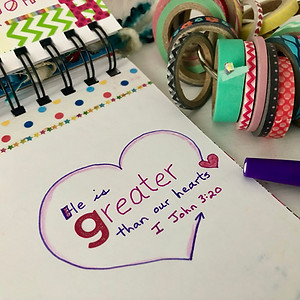 He is
greater
than our hearts
I John 3:20